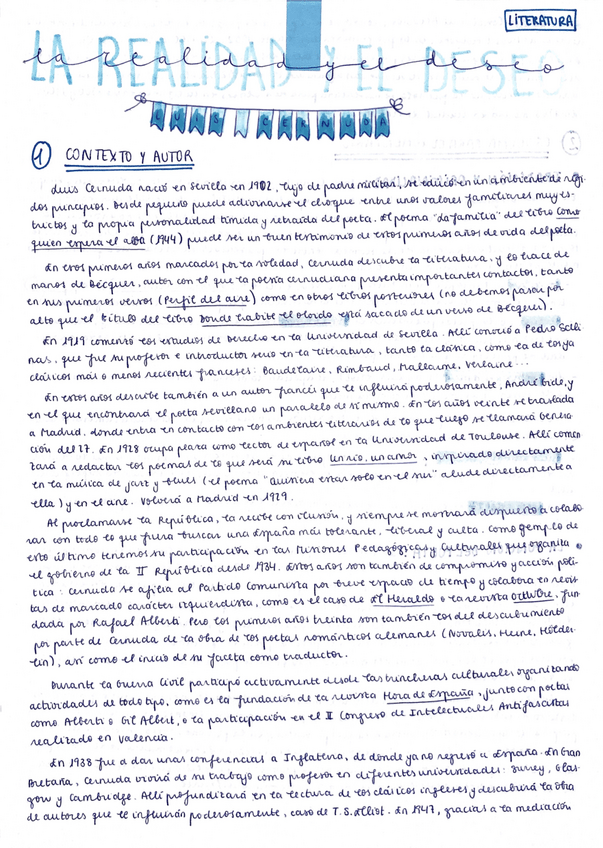 LITERATURA
LA REALIDAD Y EL DESEO
la realidad y el deseo
LUIS CERNUDA
1 CONTEXTO Y AUTOR
Luis Cernuda nació en Sevilla en 1902, hijo de padre militar, se educó en un ambiente de rígi-
dos principios. Desde pequeño puede adivinarse el choque entre unos valores familiares muy es-
trictos y la propia personalidad tímida y retraída del poeta. El poema "La familia" del libro Como
quien espera el alba (1944) puede ser un buen testimonio de estos primeros años de vida del poeta.
En esos primeros años marcados por la soledad, Cernuda descubre la literatura, y lo hace de
manos de Bécquer, autor con el que la poesía cernudiana presenta importantes contactos, tanto
en sus primeros versos (Perfil del aire) como en otros libros posteriores (no debemos pasar por
alto que el título del libro Donde habite el olvido está sacado de un verso de Bécquer).
En 1919 comenzó los estudios de Derecho en la Universidad de Sevilla. Allí conoció a Pedro Sali-
nas, que fue su profesor e introductor serio en la literatura, tanto la clásica, como la de los ya
clásicos más o menos recientes franceses: Baudelaire, Rimbaud, Mallarme, Verlaine...
En estos años descubre también a un autor francés que le influirá poderosamente, André Gide, y
en el que encontrará el poeta sevillano un paralelo de sí mismo. En los años veinte se traslada
a Madrid, donde entra en contacto con los ambientes literarios de lo que luego se llamará Genera-
ción del 27. En 1928 ocupa plaza como lector de español en la Universidad de Toulouse. Allí comen
zará a redactar los poemas de lo que será su libro Un río, un amor, inspirado directamente
en la música de jazz y blues (el poema "Quisiera estar solo en el sur" alude directamente a
ella) y en el cine. Volverá a Madrid en 1929.
Al proclamarse la República, la recibe con ilusión, y siempre se mostrará dispuesto a colabo
rar con todo lo que fuera buscar una España más tolerante, liberal y culta. Como ejemplo de
esto último tenemos su participación en las Misiones Pedagógicas y Culturales que organiza
el gobierno de la II República desde 1934. Estos años son también de compromiso y acción polí-
tica: Cernuda se afilia al Partido Comunista por breve espacio de tiempo y colabora en revis
tas de marcado carácter izquierdista, como es el caso de El Heraldo o la revista Octubre, fun
dada por Rafael Alberti. Pero los primeros años treinta son también los del descubrimiento
por parte de Cernuda de la obra de los poetas románticos alemanes (Novales, Heine, Hölder-
lin), así como el inicio de su faceta como traductor.
Durante la Guerra Civil participó activamente desde las trincheras culturales organizando
actividades de todo tipo, como es la fundación de la revista Hora de España, junto con poetas
como Alberti o Gil Albert, o la participación en el II Congreso de Intelectuales Antifascistas
realizado en Valencia.
En 1938 fue a dar unas conferencias a Inglaterra, de donde ya no regresó a España. En Gran
Bretaña, Cernuda vivirá de su trabajo como profesor en diferentes universidades: Surrey, Glas-
gow y Cambridge. Allí profundizará en la lectura de los clásicos ingleses y descubrirá la obra
de autores que le influirán poderosamente, caso de T.S. Elliot. En 1947, gracias a la mediación